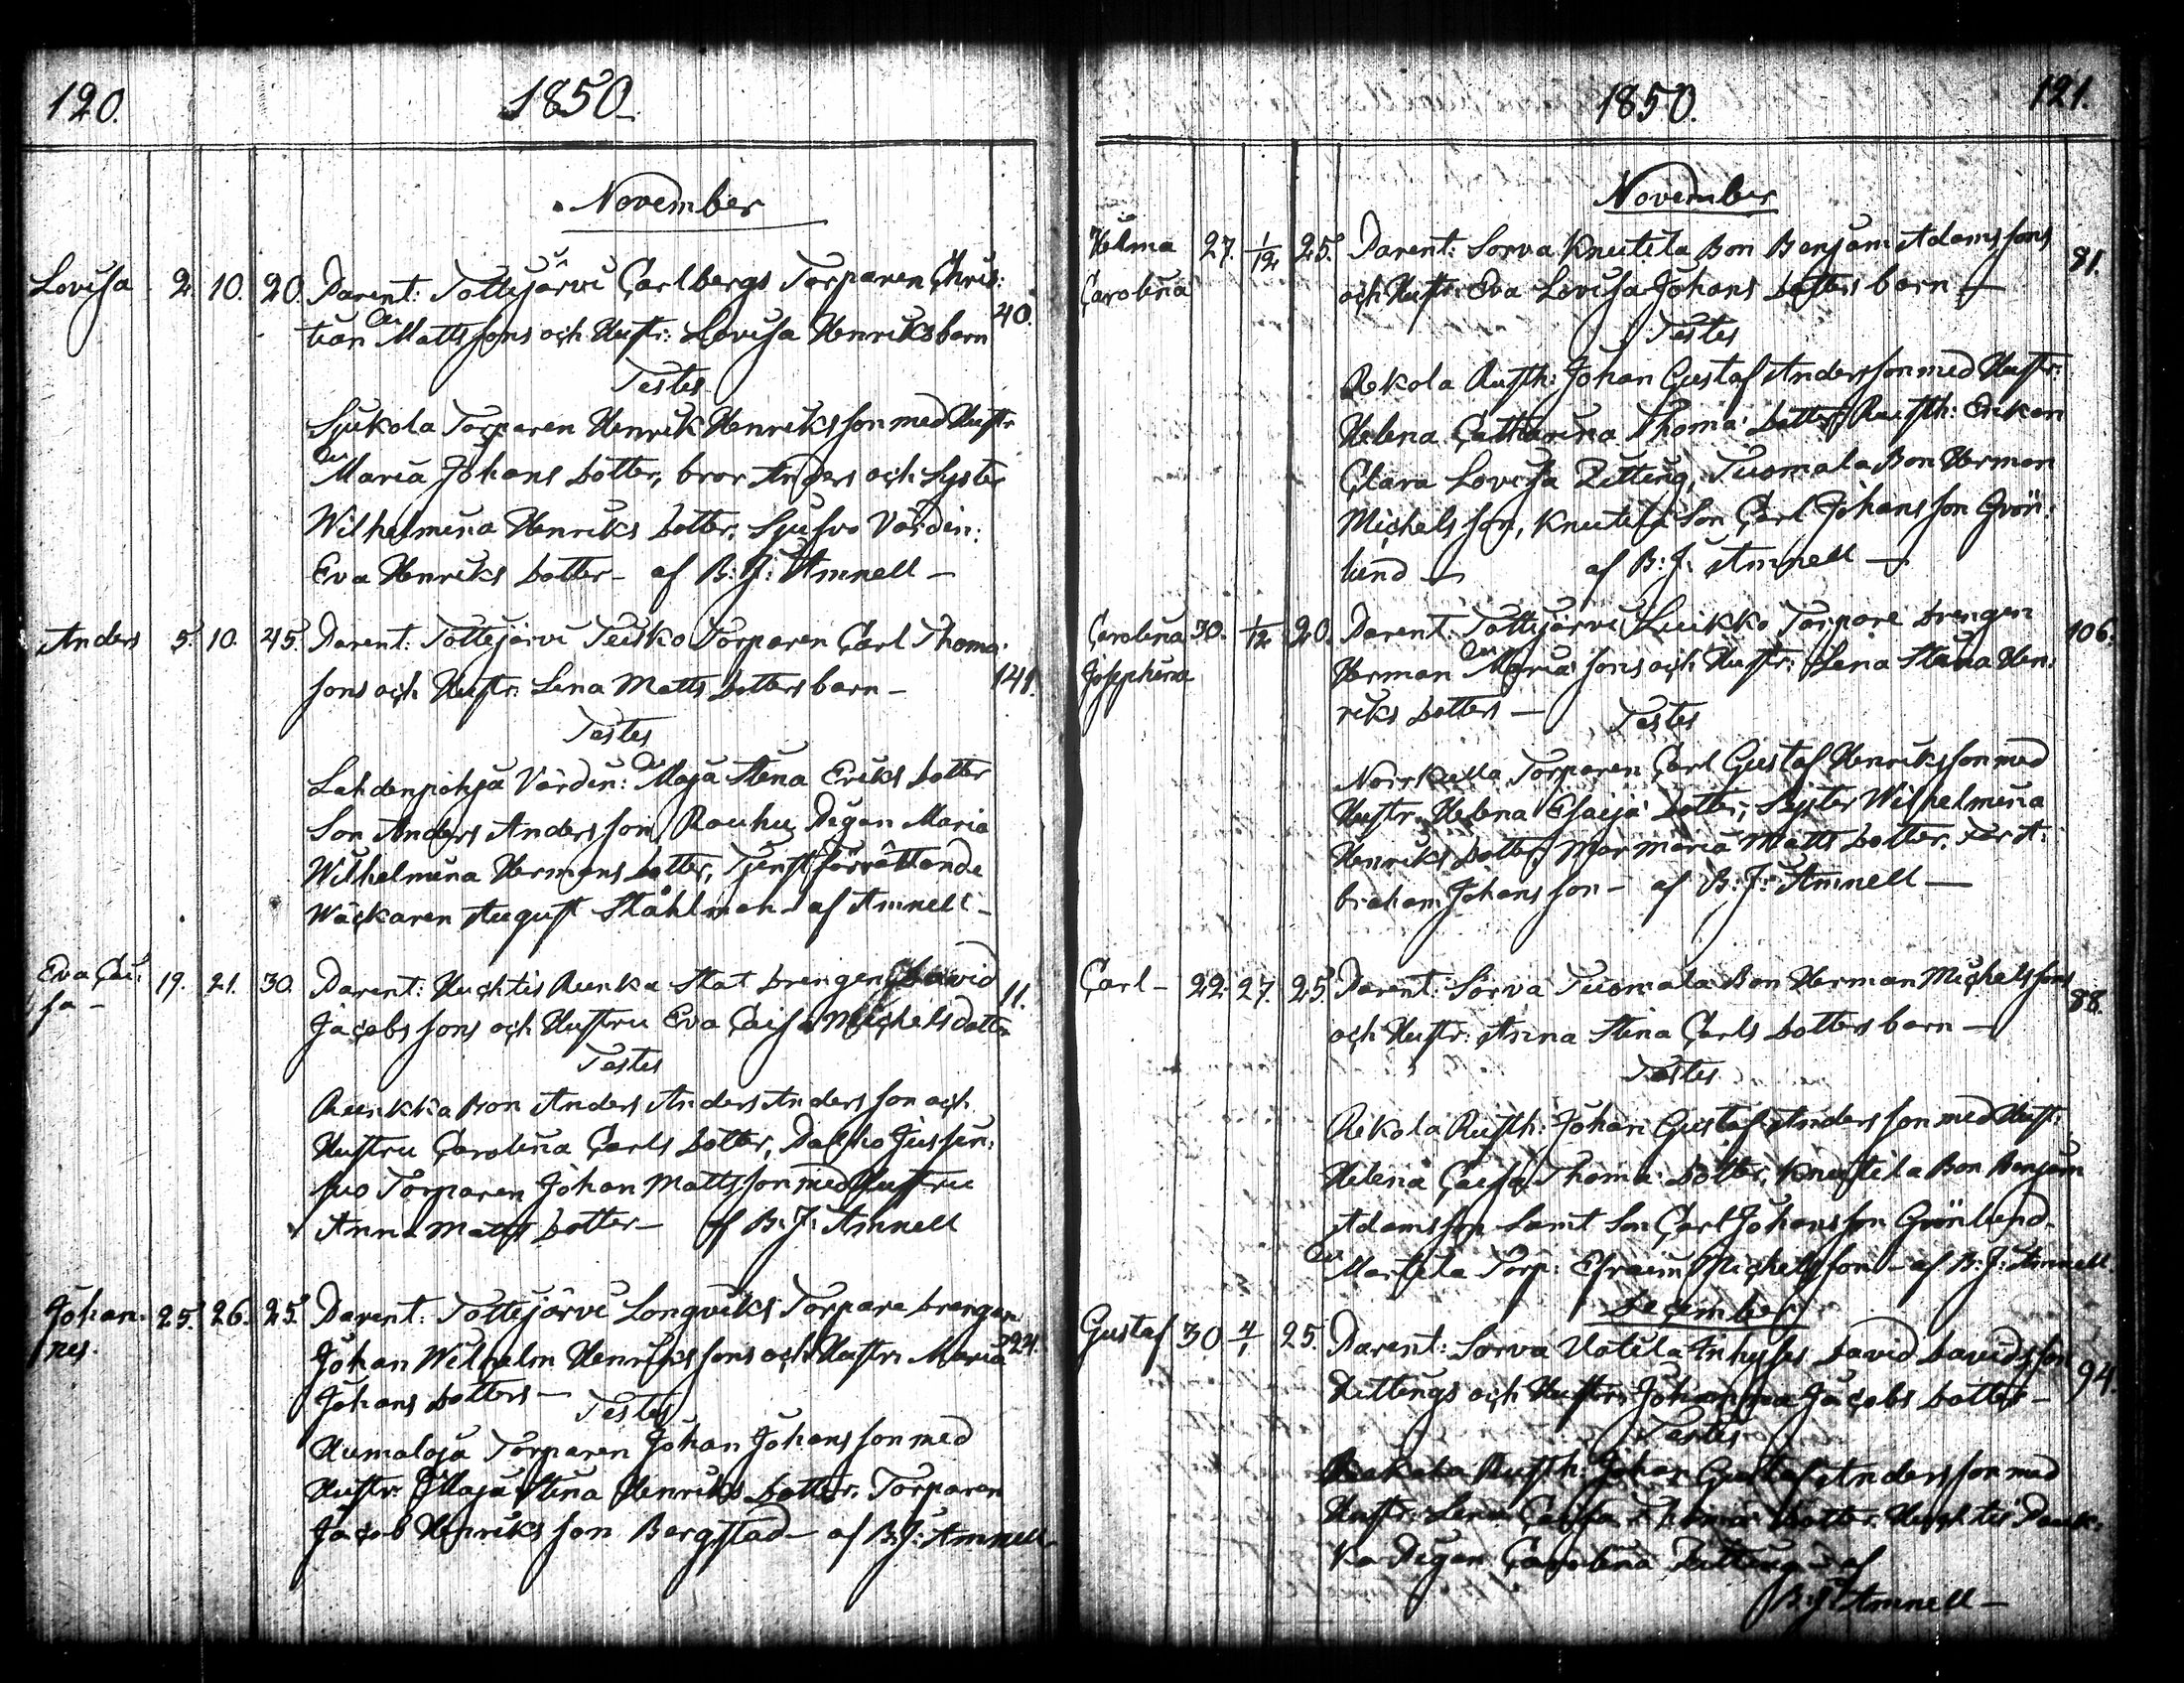 120.
1850
November
Lovisa 2. 10. 20. Parent: Tottijärvi Carlbergs Torparen Chris:
tian Mattssons och Hustr: Lovisa Henriks barn 40.
Testes
Sjukola Torparen Henrik Henriksson med Hustr
Maria Johans dotter, bror Anders och Syster
Wilhelmina Henriks dotter, Värdin:
Eva Henriks dotter – af B: J: Amnell –
Anders 5. 10. 45. Parent: Tottijärvi Teisko Torparen Carl Thomæ
sons och Hustr: Lena Matts dotters barn – 141.
Testes
Lahdenpohja Värdin: Maja Stena Eriks dotter
Son Anders Andersson, Rauhu Pigan Maria
Wilhelmina Hermans dotter, Tjenstförrättande
Wäckaren August Ståhlman – af Amnell –
Eva Cai: 19. 21. 30. Parent: Huchtis Runka Stat drengen David 11.
sa –
Jacobs sons och Hustru Eva Caisa Michels dotter
Testes
Runkka Bon Anders Anders Andersson och
Hustru Carolina Carls dotter,
suo Torparen Johan Mattsson med Hustru
Anna Matts dotter – af B: J: Amnell
Johan: 25. 26. 25. Parent: Tottijärvi Longviks Torpare drengen
nes.
Johan Wilhelm Henriks sons och Hustr: Maria 224.
Johans dotters –
Testes
Humaloja Torparen Johan Johansson med
Hustr: Maja Stina Henriks dotter. Torparen
Jacob Henriksson Bergstad – af B: J: Amnell
1850.
121.
November
Helma 27. 1/12 25. Parent: Sorva Knutila Bon Benjam Adams sons 81.
Carolina
och Hustr: Eva Lovisa Johans dotters barn –
Testes
Rekola Rusth: Johan Gustaf Andersson med Hustr:
Helena Catharina Thomæ dotter, Rusth: Enkan
Clara Lovisa Zitting, Tuomala Bon Herman
Michelsson, Knutila Son Carl Johansson Grön:
lund – af B: J: Amnell –
Carolina 30. 1/12 20. Parent: Tottijärvi Luikko Torpare drengen 106.
Josephina
Herman Mariæ sons och Hustr: Lena Stina Hen:
riks dotters –
Testes
Norrkulla Torparen Carl Gustaf Henriksson med
Hustr: Helena Esaiæ dotter, Syster Wilhelmina
Henriks dotter, Mor Maria Matts dotter. Far A:
braham Johansson – af B: J: Amnell –
Carl – 22. 27. 25. Parent: Sorva Tuomala Bon Herman Michels sons 88.
och Hustr: Anna Stina Carls dotters barn –
Testes
Rekola Rusth: Johan Gustaf Andersson med Hustr:
Helena Caisa Thomæ dotter, Knutila Bon Benjam
Adamsson samt Son Carl Johansson Grönlund.
Markula Torp: Efraim Michelsson – af B: J: Amnell
December
Gustaf 30. 4/1 25. Parent: Sorva Uotila Inhyses David Davidsson 94.
Zittings och Hustr: Johanna Jacobs dotter –
Testes
Rekola Rusth: Johan Gustaf Andersson med
Hustr: Lena Caisa Thomæ dotter. Huchtis
ka Pigan Carolina Zitting – af
B: J: Amnell –